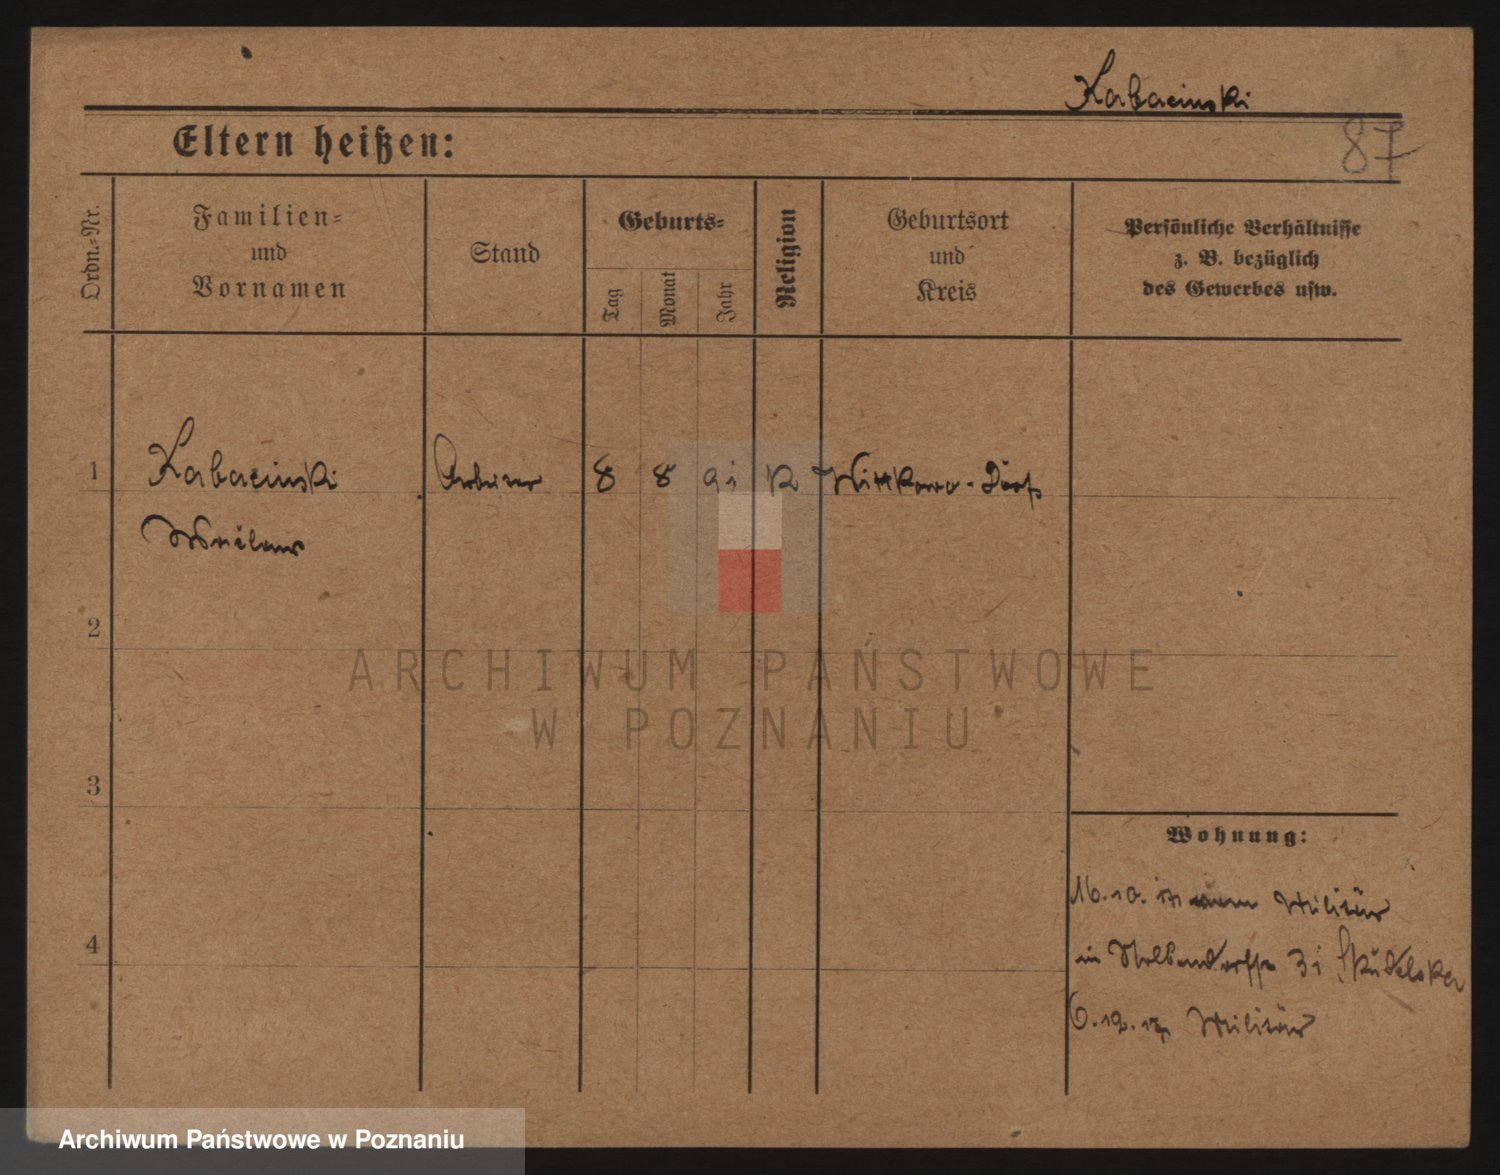 Kabacinski
87
Eltern heißen:
Ordn.=Nr.
Familien=
und
Vornamen
Stand
Geburts=
Tag
Monat
Jahr
Religion
Geburtsort
und
Kreis
Persönliche Verhältnisse
z. B. bezüglich
des Gewerbes usw.
1 Kabacinski Arbeiter 8 8 91 K Wittkowo-Dorf
2
3
4
ARCHIWUM PAŃSTWOWE
W POZNANIU
Wohnung:
16.10. 17 Militär
in 31
6.12.17 Militär
Archiwum Państwowe w Poznaniu